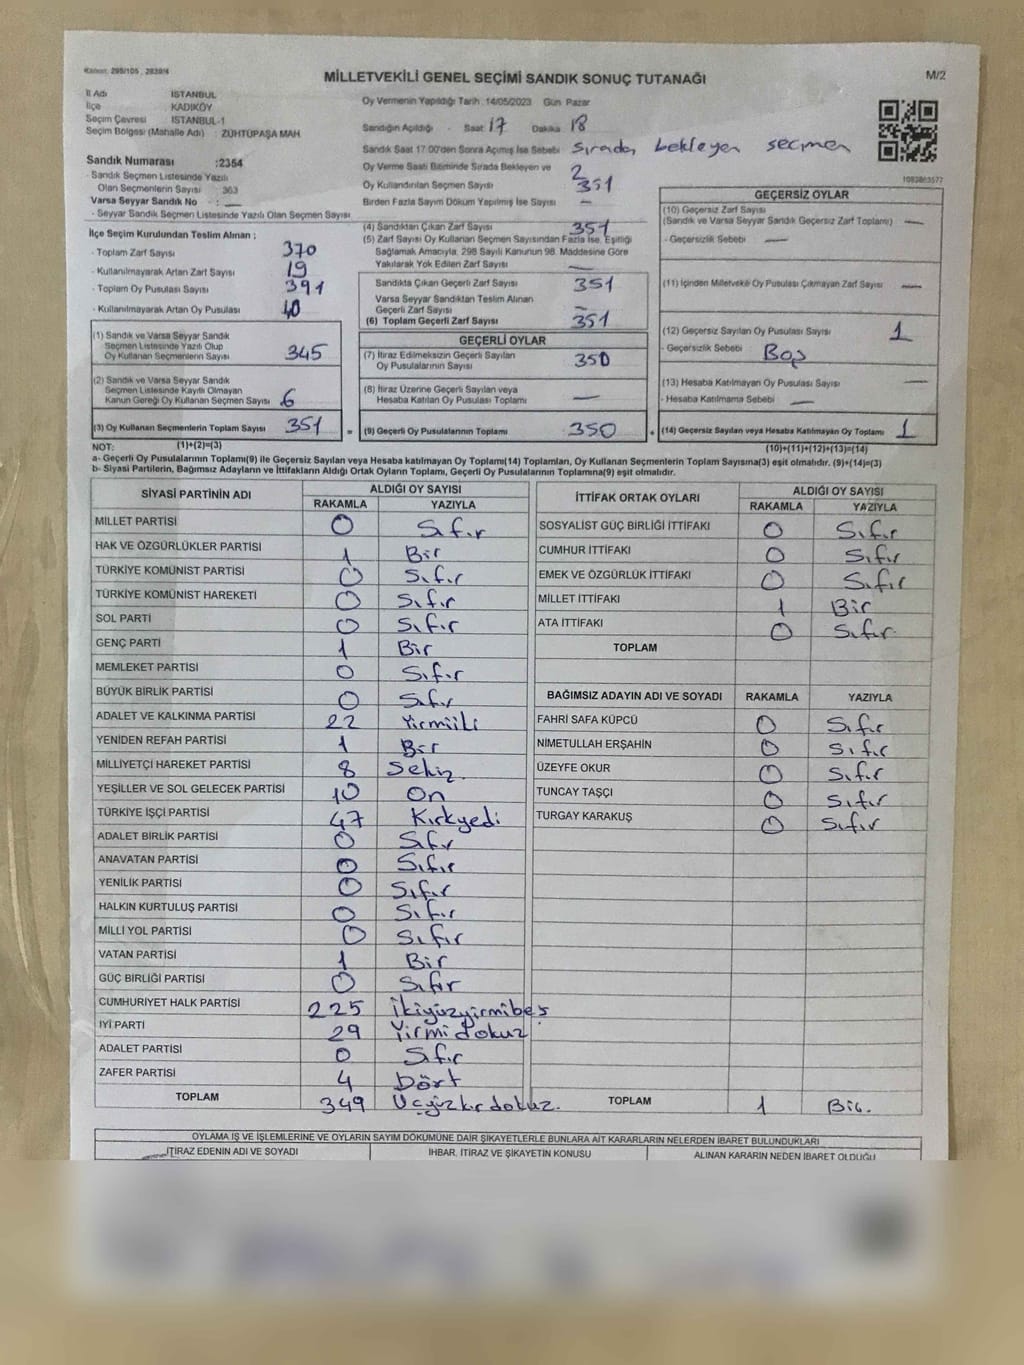 Kanun: 298/105 , 2839/4
MİLLETVEKİLİ GENEL SEÇİMİ SANDIK SONUÇ TUTANAĞI
M/2
İl Adı İSTANBUL
İlçe KADIKÖY
Seçim Çevresi İSTANBUL-1
Seçim Bölgesi (Mahalle Adı) : ZÜHTÜPAŞA MAH
Oy Vermenin Yapıldığı Tarih: 14/05/2023 Gün Pazar
Sandığın Açıldığı - Saat 17 Dakika 18
Sandık Saat 17:00'den Sonra Açılmış İse Sebebi Sırada bekleyen seçmen
Oy Verme Saati Bitiminde Sırada Bekleyen ve 2
Oy Kullandırılan Seçmen Sayısı 351
Birden Fazla Sayım Döküm Yapılmış İse Sayısı —
Sandık Numarası :2354
- Sandık Seçmen Listesinde Yazılı
Olan Seçmenlerin Sayısı 363
Varsa Seyyar Sandık No : —
- Seyyar Sandık Seçmen Listesinde Yazılı Olan Seçmen Sayısı
İlçe Seçim Kurulundan Teslim Alınan :
- Toplam Zarf Sayısı 370
- Kullanılmayarak Artan Zarf Sayısı 19
- Toplam Oy Pusulası Sayısı 391
- Kullanılmayarak Artan Oy Pusulası 40
(1) Sandık ve Varsa Seyyar Sandık
Seçmen Listesinde Yazılı Olup
Oy Kullanan Seçmenlerin Sayısı 345
(2) Sandık ve Varsa Seyyar Sandık
Seçmen Listesinde Kayıtlı Olmayan
Kanun Gereği Oy Kullanan Seçmen Sayısı 6
(3) Oy Kullanan Seçmenlerin Toplam Sayısı 351
(4) Sandıktan Çıkan Zarf Sayısı 351
(5) Zarf Sayısı Oy Kullanan Seçmen Sayısından Fazla İse, Eşitliği
Sağlamak Amacıyla, 298 Sayılı Kanunun 98. Maddesine Göre
Yakılarak Yok Edilen Zarf Sayısı —
Sandıkta Çıkan Geçerli Zarf Sayısı 351
Varsa Seyyar Sandıktan Teslim Alınan
Geçerli Zarf Sayısı —
(6) Toplam Geçerli Zarf Sayısı 351
GEÇERLİ OYLAR
(7) İtiraz Edilmeksizin Geçerli Sayılan
Oy Pusulalarının Sayısı 350
(8) İtiraz Üzerine Geçerli Sayılan veya
Hesaba Katılan Oy Pusulası Toplamı —
= (9) Geçerli Oy Pusulalarının Toplamı 350
1093863577
GEÇERSİZ OYLAR
(10) Geçersiz Zarf Sayısı
(Sandık ve Varsa Seyyar Sandık Geçersiz Zarf Toplamı) —
- Geçersizlik Sebebi —
(11) İçinden Milletvekili Oy Pusulası Çıkmayan Zarf Sayısı —
(12) Geçersiz Sayılan Oy Pusulası Sayısı 1
- Geçersizlik Sebebi Boş
(13) Hesaba Katılmayan Oy Pusulası Sayısı —
- Hesaba Katılmama Sebebi —
+ (14) Geçersiz Sayılan veya Hesaba Katılmayan Oy Toplamı 1
NOT: (1)+(2)=(3) (10)+(11)+(12)+(13)=(14)
a- Geçerli Oy Pusulalarının Toplamı(9) ile Geçersiz Sayılan veya Hesaba katılmayan Oy Toplamı(14) Toplamları, Oy Kullanan Seçmenlerin Toplam Sayısına(3) eşit olmalıdır. (9)+(14)=(3)
b- Siyasi Partilerin, Bağımsız Adayların ve İttifakların Aldığı Ortak Oyların Toplamı, Geçerli Oy Pusulalarının Toplamına(9) eşit olmalıdır.
SİYASİ PARTİNİN ADI ALDIĞI OY SAYISI
RAKAMLA YAZIYLA
MİLLET PARTİSİ 0 Sıfır
HAK VE ÖZGÜRLÜKLER PARTİSİ 1 Bir
TÜRKİYE KOMÜNİST PARTİSİ 0 Sıfır
TÜRKİYE KOMÜNİST HAREKETİ 0 Sıfır
SOL PARTİ 0 Sıfır
GENÇ PARTİ 1 Bir
MEMLEKET PARTİSİ 0 Sıfır
BÜYÜK BİRLİK PARTİSİ 0 Sıfır
ADALET VE KALKINMA PARTİSİ 22 Yirmiiki
YENİDEN REFAH PARTİSİ 1 Bir
MİLLİYETÇİ HAREKET PARTİSİ 8 Sekiz
YEŞİLLER VE SOL GELECEK PARTİSİ 10 On
TÜRKİYE İŞÇİ PARTİSİ 47 Kırkyedi
ADALET BİRLİK PARTİSİ 0 Sıfır
ANAVATAN PARTİSİ 0 Sıfır
YENİLİK PARTİSİ 0 Sıfır
HALKIN KURTULUŞ PARTİSİ 0 Sıfır
MİLLİ YOL PARTİSİ 0 Sıfır
VATAN PARTİSİ 1 Bir
GÜÇ BİRLİĞİ PARTİSİ 0 Sıfır
CUMHURİYET HALK PARTİSİ 225 İkiyüzyirmibeş
İYİ PARTİ 29 Yirmidokuz
ADALET PARTİSİ 0 Sıfır
ZAFER PARTİSİ 4 Dört
TOPLAM 349 Üçyüzkırdokuz.
İTTİFAK ORTAK OYLARI ALDIĞI OY SAYISI
RAKAMLA YAZIYLA
SOSYALİST GÜÇ BİRLİĞİ İTTİFAKI 0 Sıfır
CUMHUR İTTİFAKI 0 Sıfır
EMEK VE ÖZGÜRLÜK İTTİFAKI 0 Sıfır
MİLLET İTTİFAKI 1 Bir
ATA İTTİFAKI 0 Sıfır
TOPLAM
BAĞIMSIZ ADAYIN ADI VE SOYADI RAKAMLA YAZIYLA
FAHRİ SAFA KÜPCÜ 0 Sıfır
NİMETULLAH ERŞAHİN 0 Sıfır
ÜZEYFE OKUR 0 Sıfır
TUNCAY TAŞÇI 0 Sıfır
TURGAY KARAKUŞ 0 Sıfır
TOPLAM 1 Bir.
OYLAMA İŞ VE İŞLEMLERİNE VE OYLARIN SAYIM DÖKÜMÜNE DAİR ŞİKAYETLERLE BUNLARA AİT KARARLARIN NELERDEN İBARET BULUNDUKLARI
İTİRAZ EDENİN ADI VE SOYADI İHBAR, İTİRAZ VE ŞİKAYETİN KONUSU ALINAN KARARIN NEDEN İBARET OLDUĞU